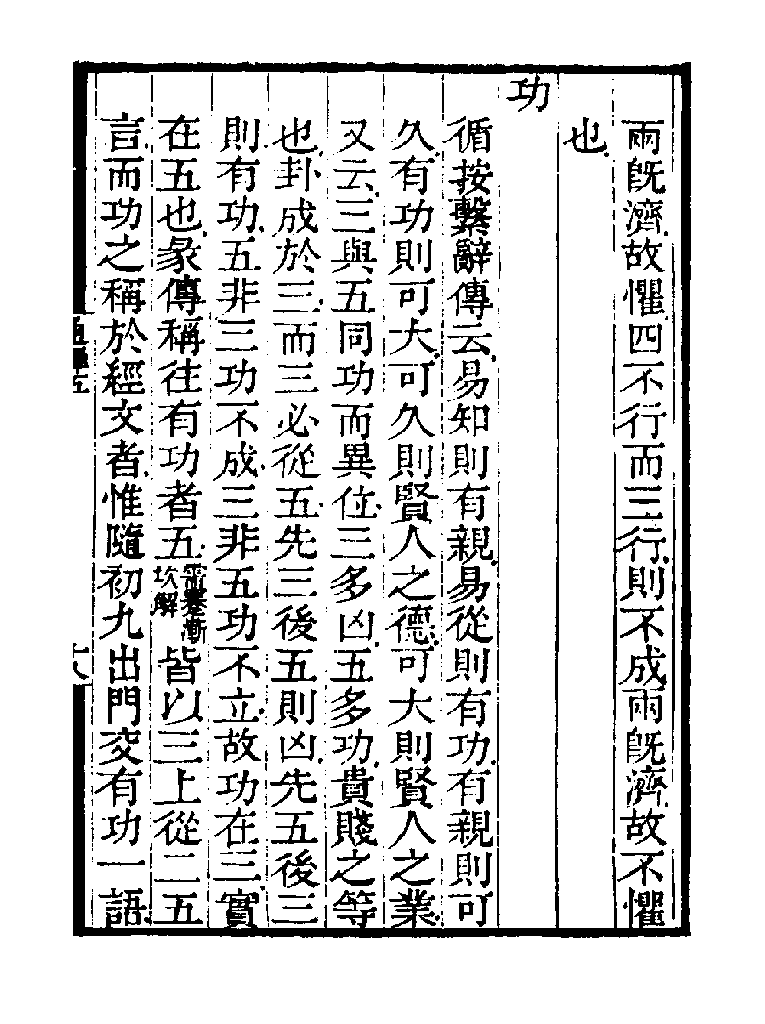 兩旣濟故懼四不行而三行則不成兩旣濟故不懼
也
功
循按繫辭傳云易知則有親易從則有功有親則可
久有功則可大可久則賢人之德可大則賢人之業
又云三與五同功而異位三多凶五多功貴賤之等
也卦成於三而三必從五先三後五則凶先五後三
則有功五非三功不成三非五功不立故功在三實
在五也彖傳稱往有功者五需蹇漸坎解皆以三上從二五
言而功之稱於經文者惟隨初九出門交有功一語
十八